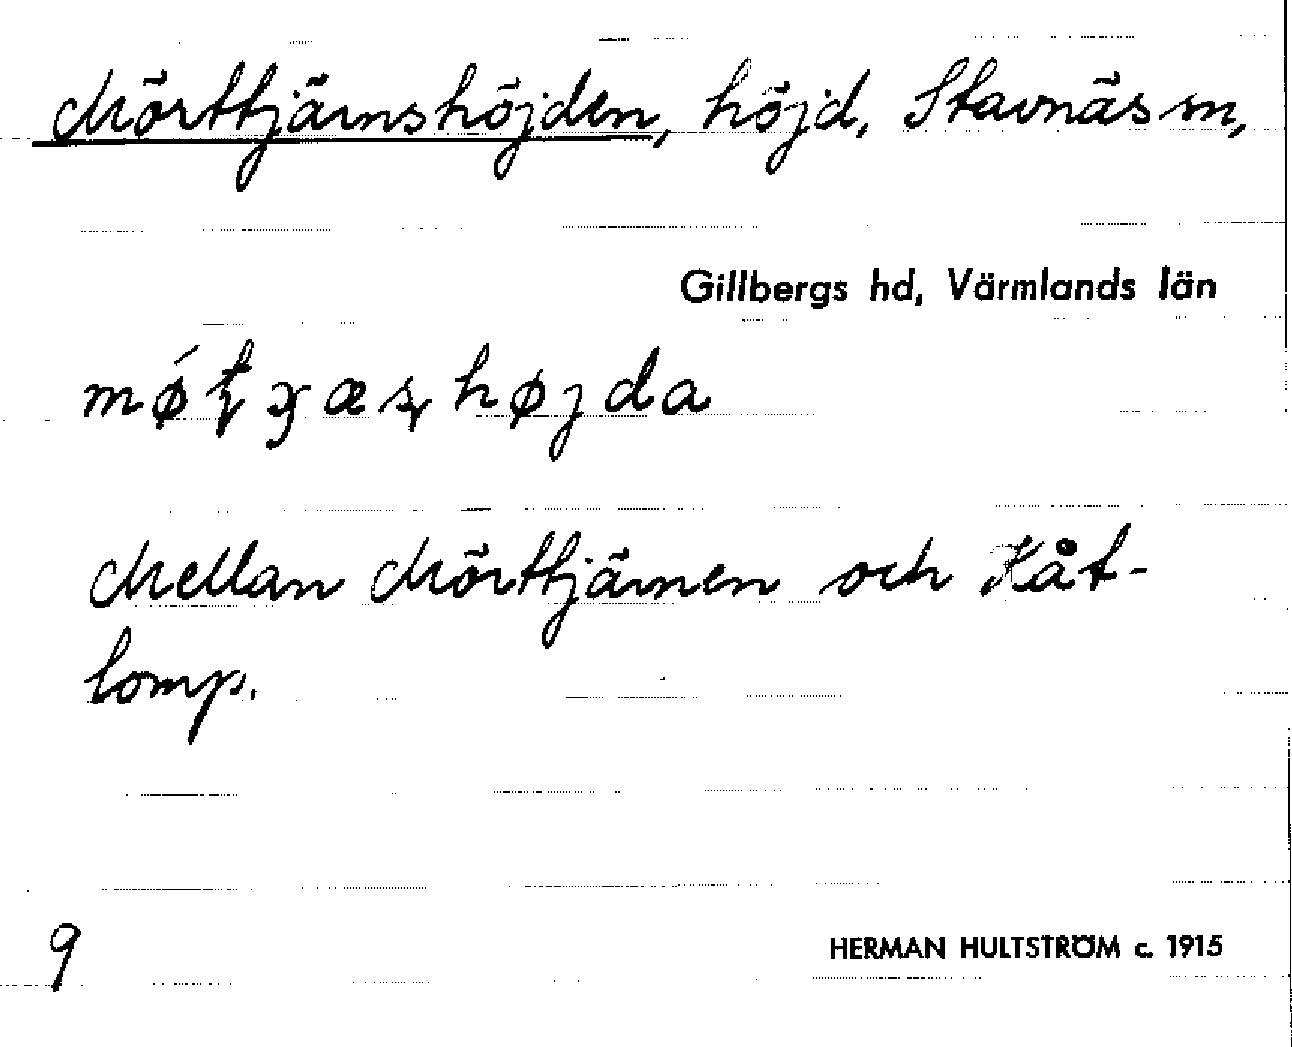 Mörttjärnshöjden, höjd, Stavnäs sn,
Gillbergs hd, Värmlands län
højda
Mellan Mörttjärnen och Kåt-
lomp.
9
HERMAN HULTSTRÖM c. 1915